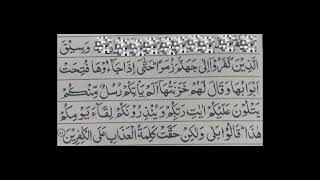 وَسِيْقَ
الَّذِيْنَ كَفَرُوْۤا اِلٰى جَهَنَّمَ زُمَرًا ؕ حَتّٰۤى اِذَا جَآءُوْهَا فُتِحَتْ
اَبْوَابُهَا وَقَالَ لَهُمْ خَزَنَتُهَاۤ اَلَمْ يَاْتِكُمْ رُسُلٌ مِّنْكُمْ
يَتْلُوْنَ عَلَيْكُمْ اٰيٰتِ رَبِّكُمْ وَيُنْذِرُوْنَكُمْ لِقَآءَ يَوْمِكُمْ
هٰذَا ؕ قَالُوْا بَلٰى وَلٰكِنْ حَقَّتْ كَلِمَةُ الْعَذَابِ عَلَى الْكٰفِرِيْنَ